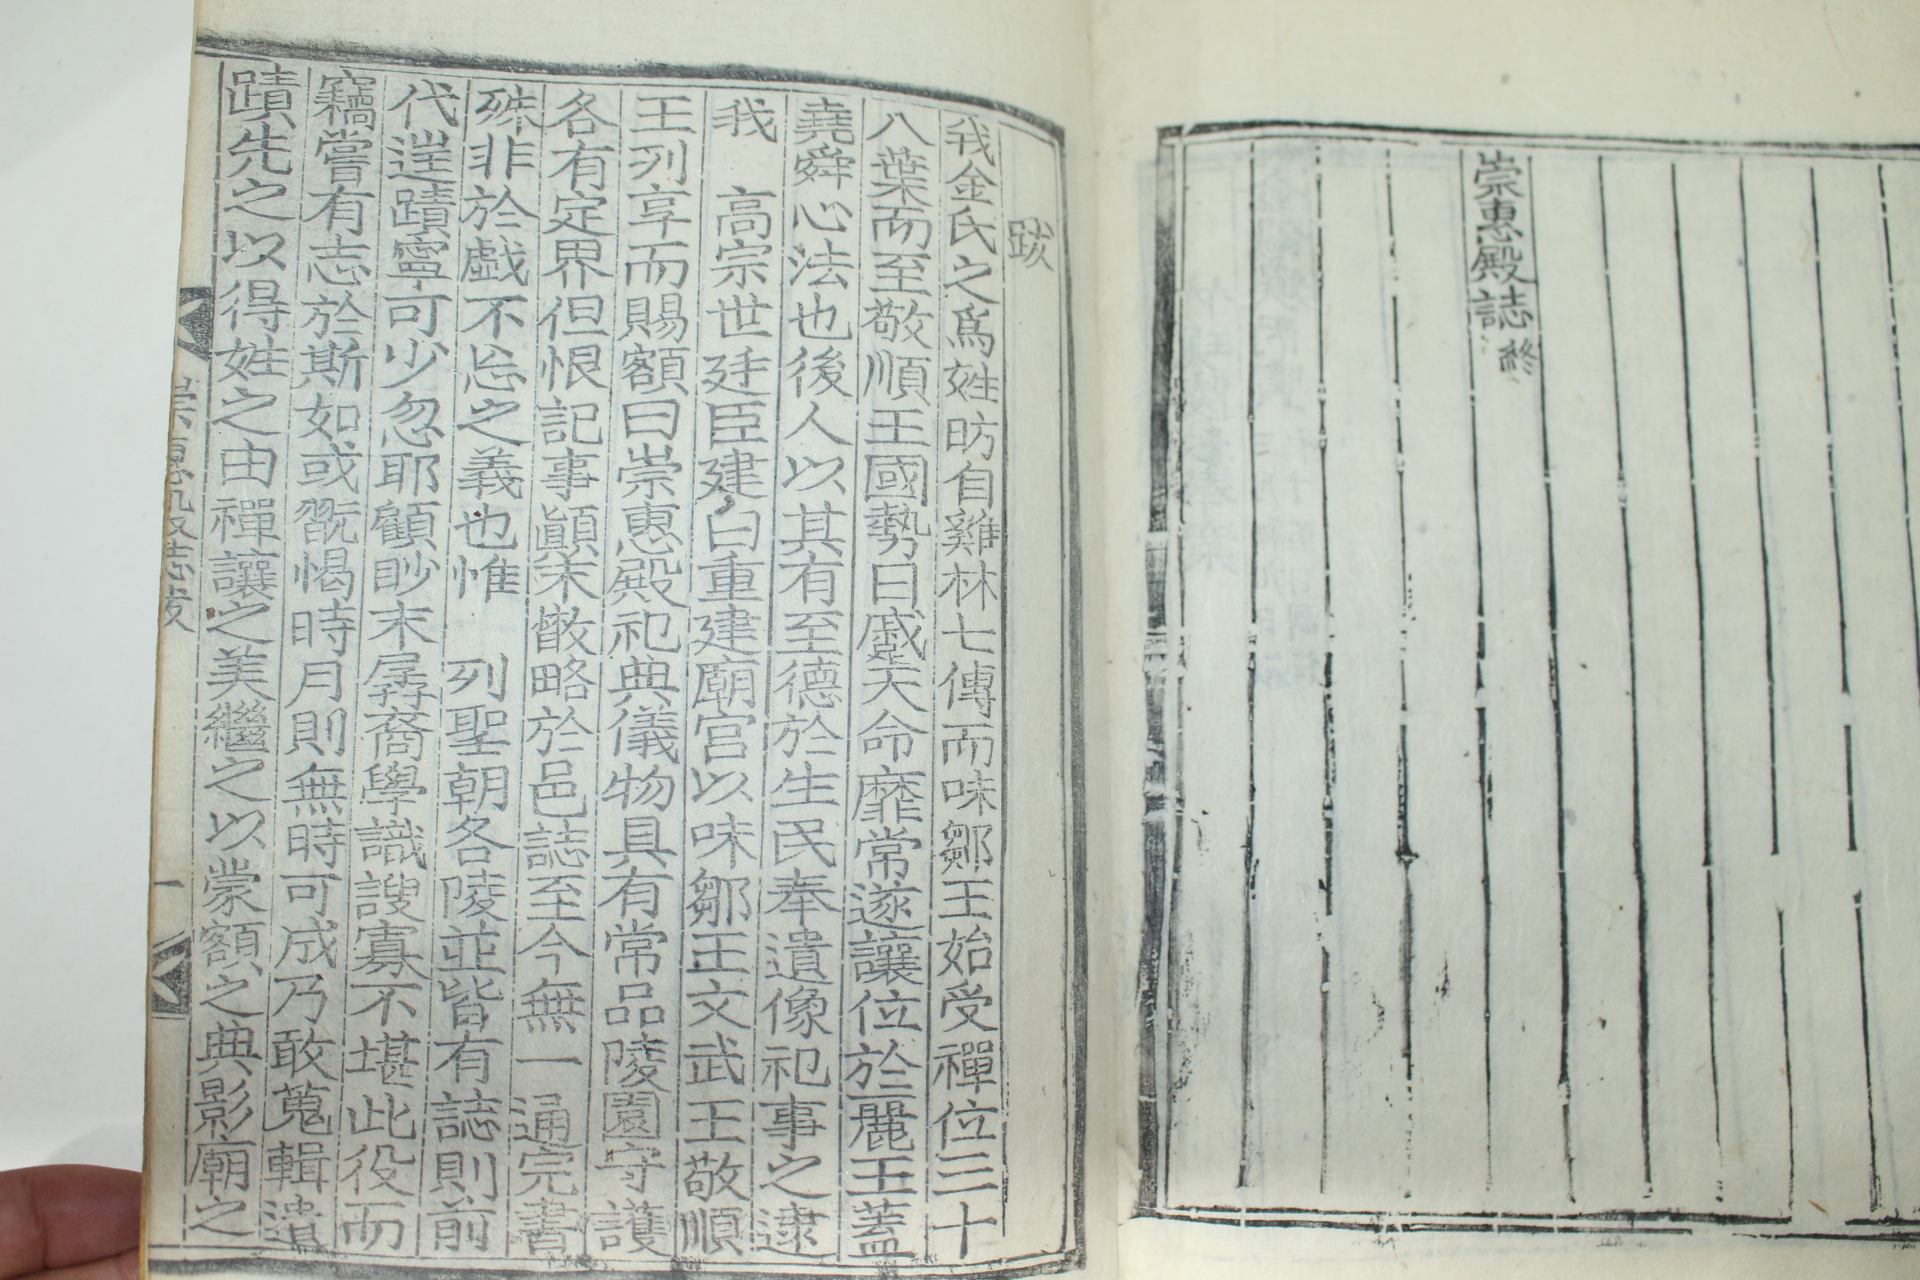 崇惠殿誌終
跋
我金氏之爲姓昉自雞林七傳而味鄒王始受禪位三十
八葉而至敬順王國勢日蹙天命靡常遂讓位於麗王蓋
堯舜心法也後人以其有至德於生民奉遺像祀事之逮
我 高宗世廷臣建白重建廟宮以味鄒王文武王敬順
王列享而賜額曰崇惠殿祀典儀物具有常品陵園守護
各有定界但恨記事顚末散略於邑誌至今無一通完書
殊非於戲不忘之義也惟 列聖朝各陵並皆有誌則前
代逞蹟寧可少忽耶顧眇末孱裔學識謏寡不堪此役而
竊嘗有志於斯如或翫愒時月則無時可成乃敢蒐輯遺
蹟先之以得姓之由禪讓之美繼之以蒙額之典影廟之
崇惠殿誌跋 一